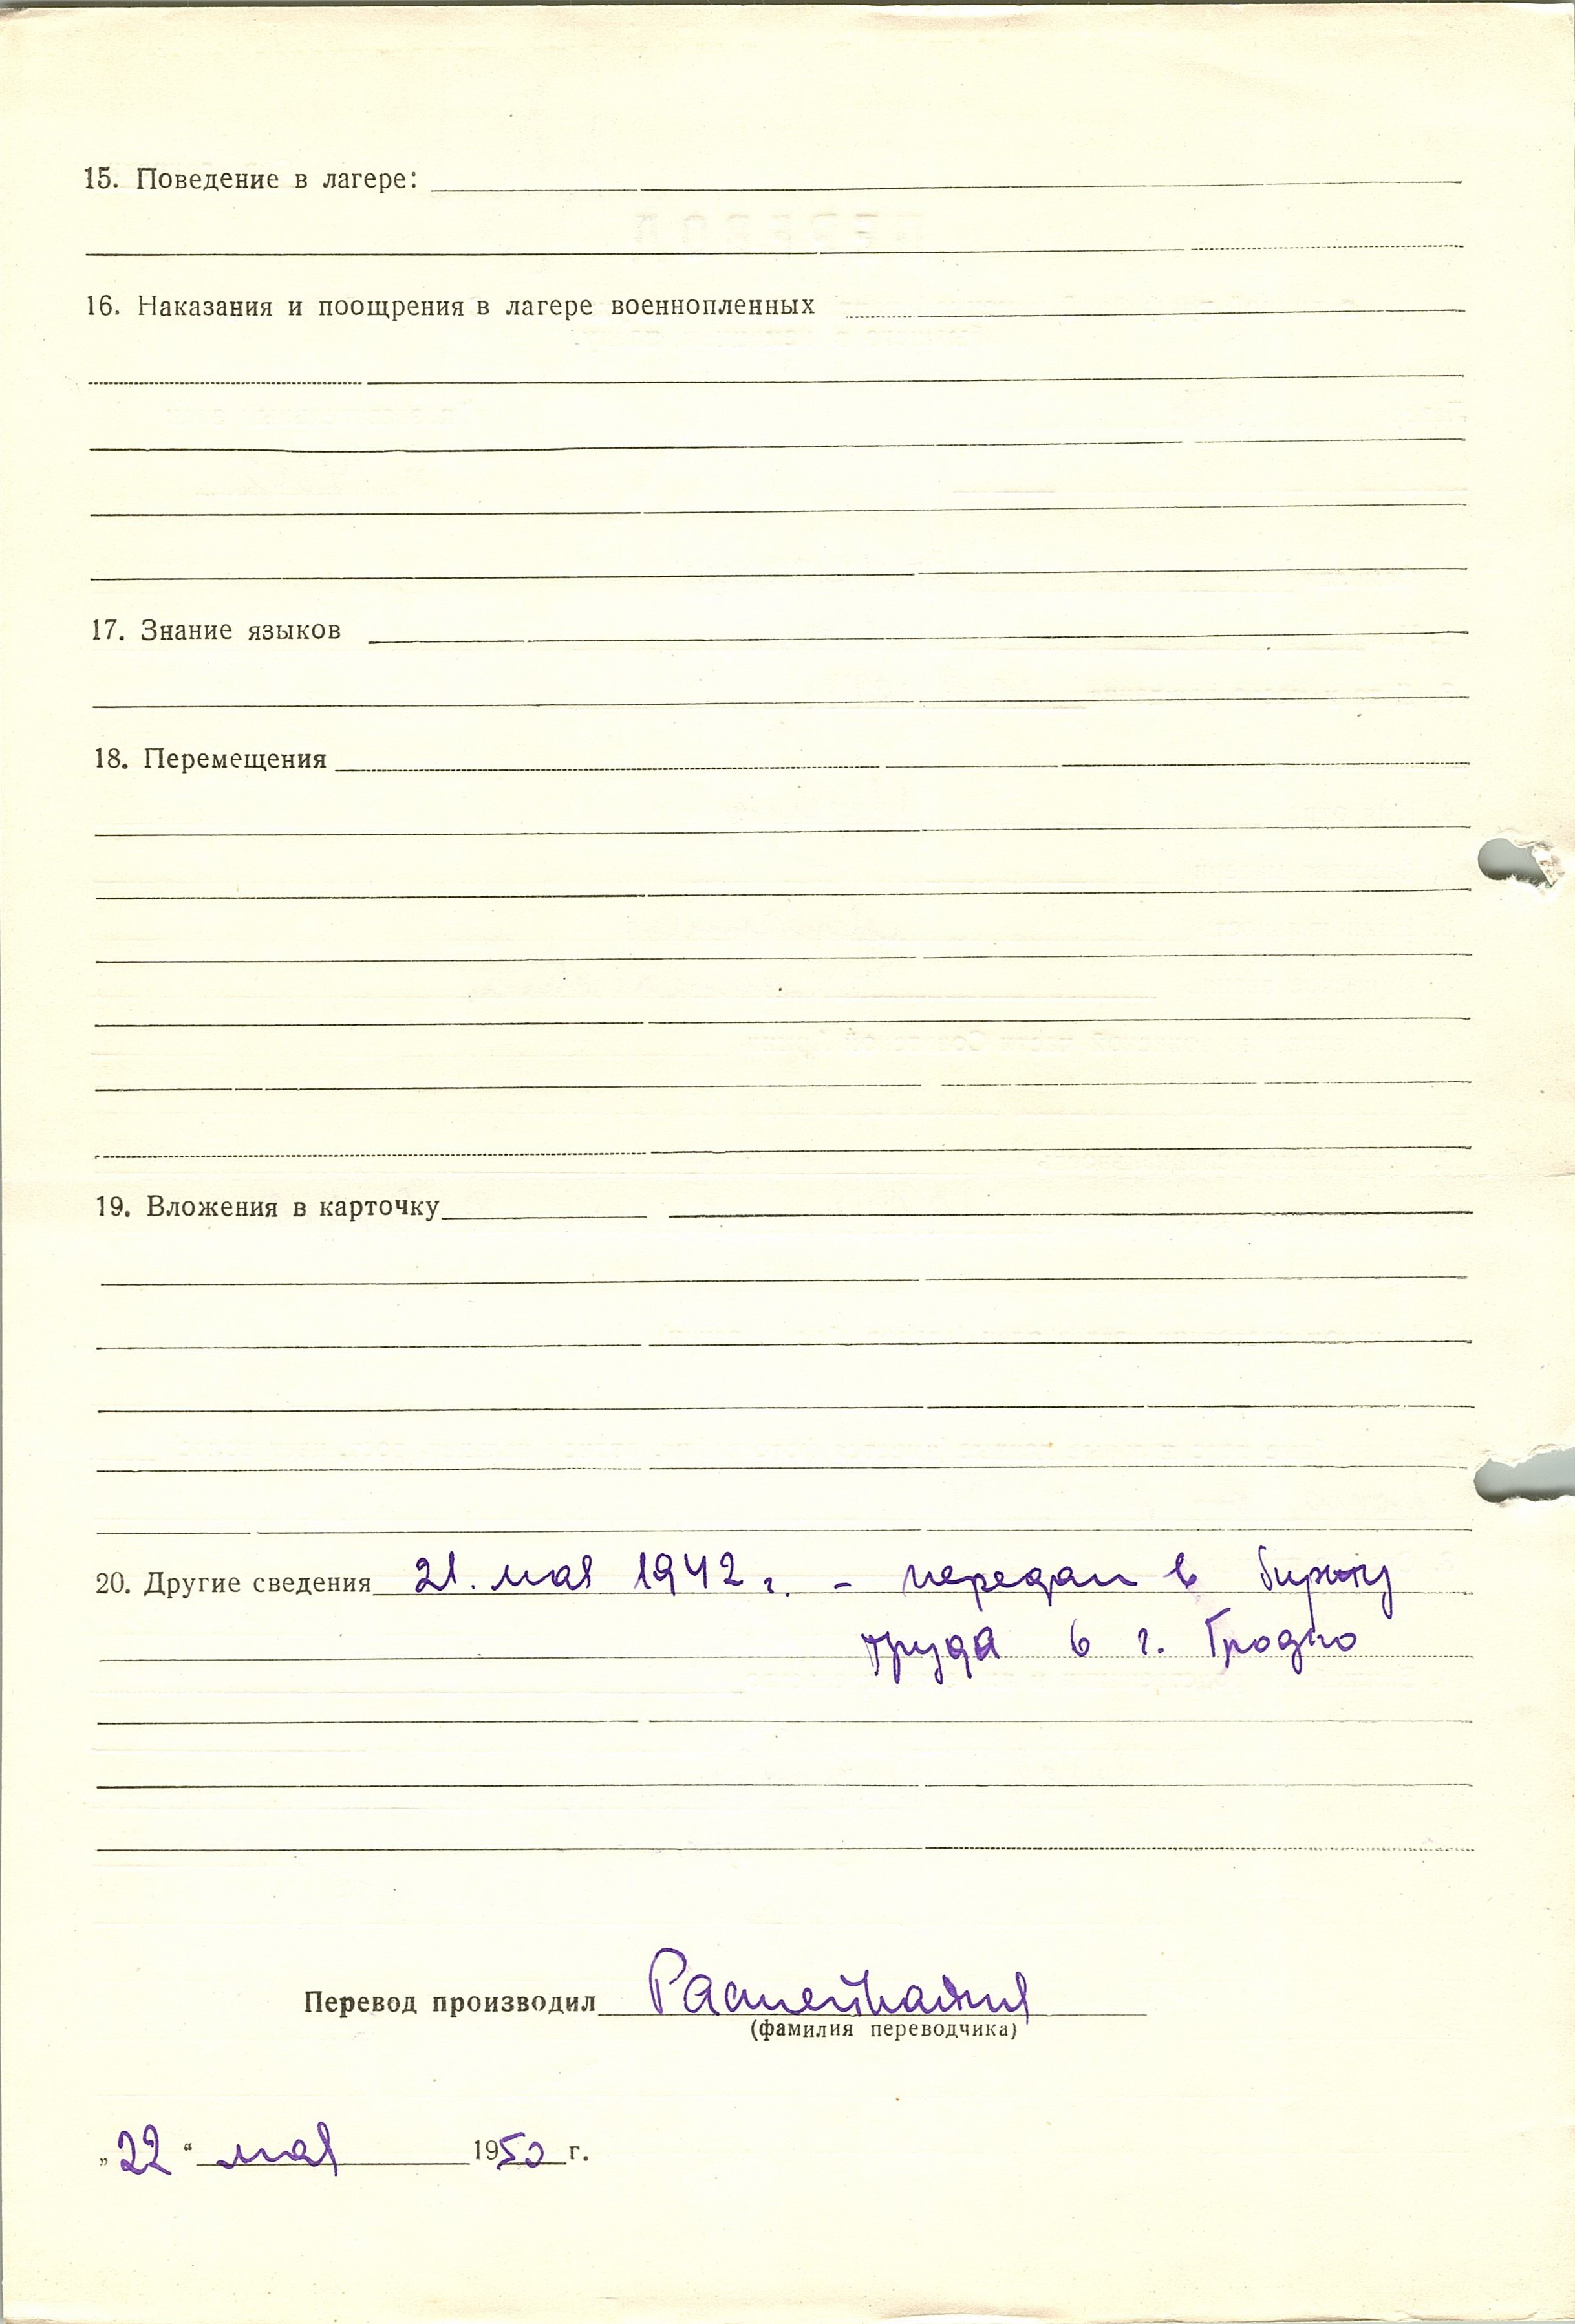 15. Поведение в лагере:
16. Наказания и поощрения в лагере военнопленных
17. Знание языков
18. Перемещения
19. Вложения в карточку
20. Другие сведения 21. мая 1942 г. – передан в биржу
труда в г. Гродно
Перевод производил
(фамилия переводчика)
„22“ мая 1950 г.